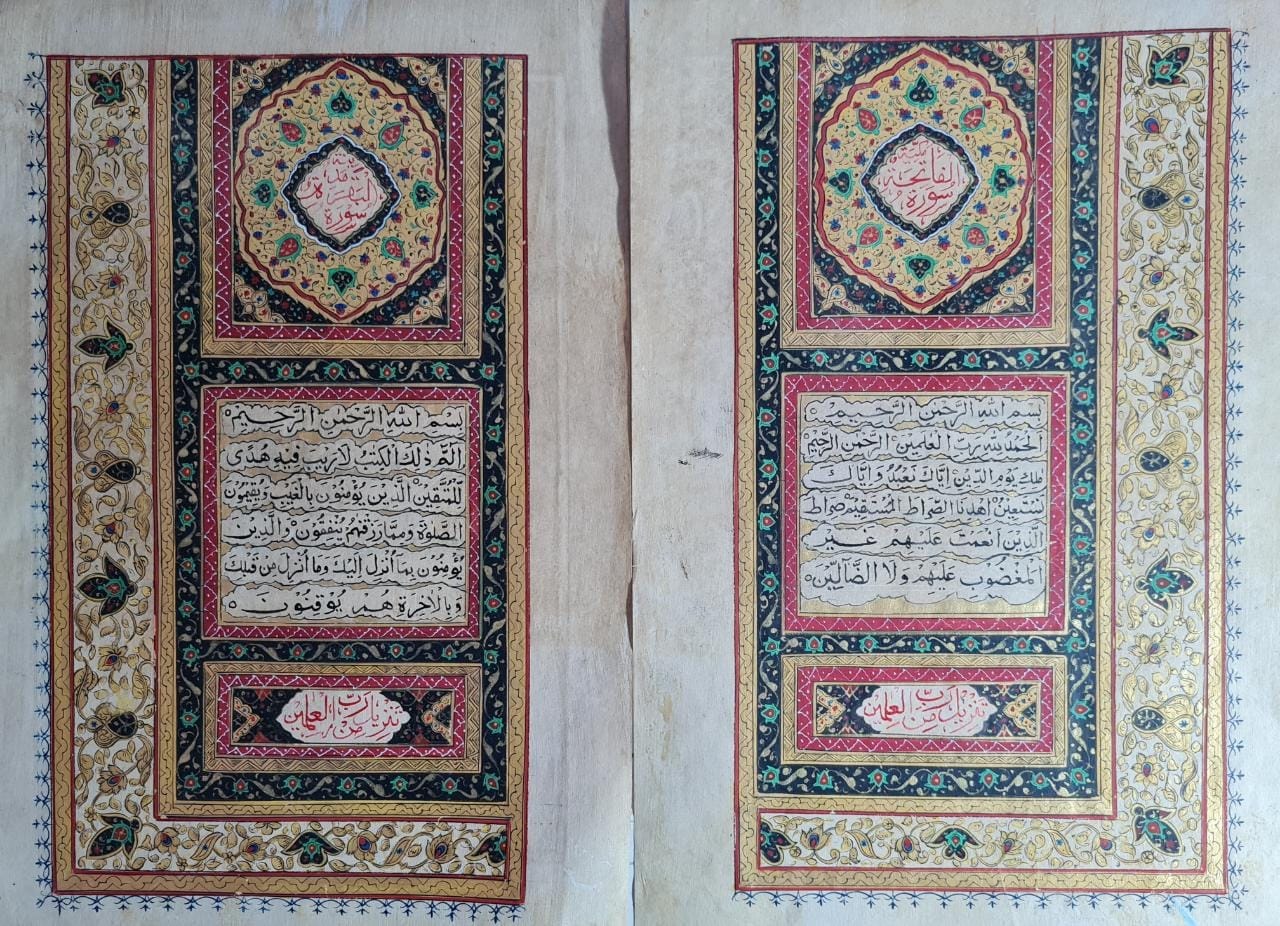 مكية
الفاتحة
سورة
بسم الله الرحمن الرحيم
الحمد لله رب العلمين الرحمن الرحيم
ملك يوم الدين إياك نعبد وإياك
نستعين اهدنا الصراط المستقيم صراط
الذين أنعمت عليهم غير
المغضوب عليهم ولا الضالين
تنزيل من رب العلمين
مدنية
البقرة
سورة
بسم الله الرحمن الرحيم
الم ذلك الكتب لا ريب فيه هدى
للمتقين الذين يؤمنون بالغيب ويقيمون
الصلوة ومما رزقنهم ينفقون والذين
يؤمنون بما أنزل إليك وما أنزل من قبلك
وبالآخرة هم يوقنون
تنزيل من رب العلمين